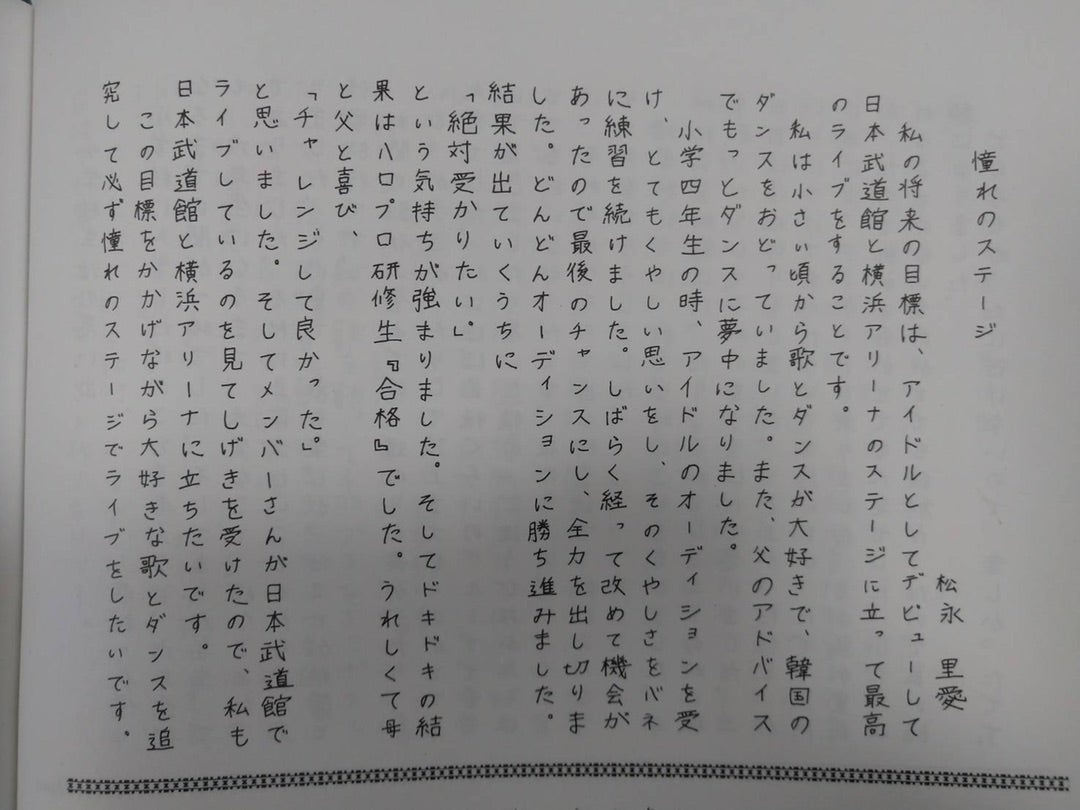 憧れのステージ
松永 里愛
私の将来の目標は、アイドルとしてデビューして
日本武道館と横浜アリーナのステージに立って最高
のライブをすることです。
私は小さい頃から歌とダンスが大好きで、韓国の
ダンスをおどっていました。また、父のアドバイス
でもっとダンスに夢中になりました。
小学四年生の時、アイドルのオーディションを受
け、とてもくやしい思いをし、そのくやしさをバネ
に練習を続けました。しばらく経って改めて機会が
あったので最後のチャンスにし、全力を出し切りま
した。どんどんオーディションに勝ち進みました。
結果が出ていくうちに
「絶対受かりたい。」
という気持ちが強まりました。そしてドキドキの結
果はハロプロ研修生『合格』でした。うれしくて母
と父と喜び、
「チャレンジして良かった。」
と思いました。そしてメンバーさんが日本武道館で
ライブしているのを見てしげきを受けたので、私も
日本武道館と横浜アリーナに立ちたいです。
この目標をかかげながら大好きな歌とダンスを追
究して必ず憧れのステージでライブをしたいです。